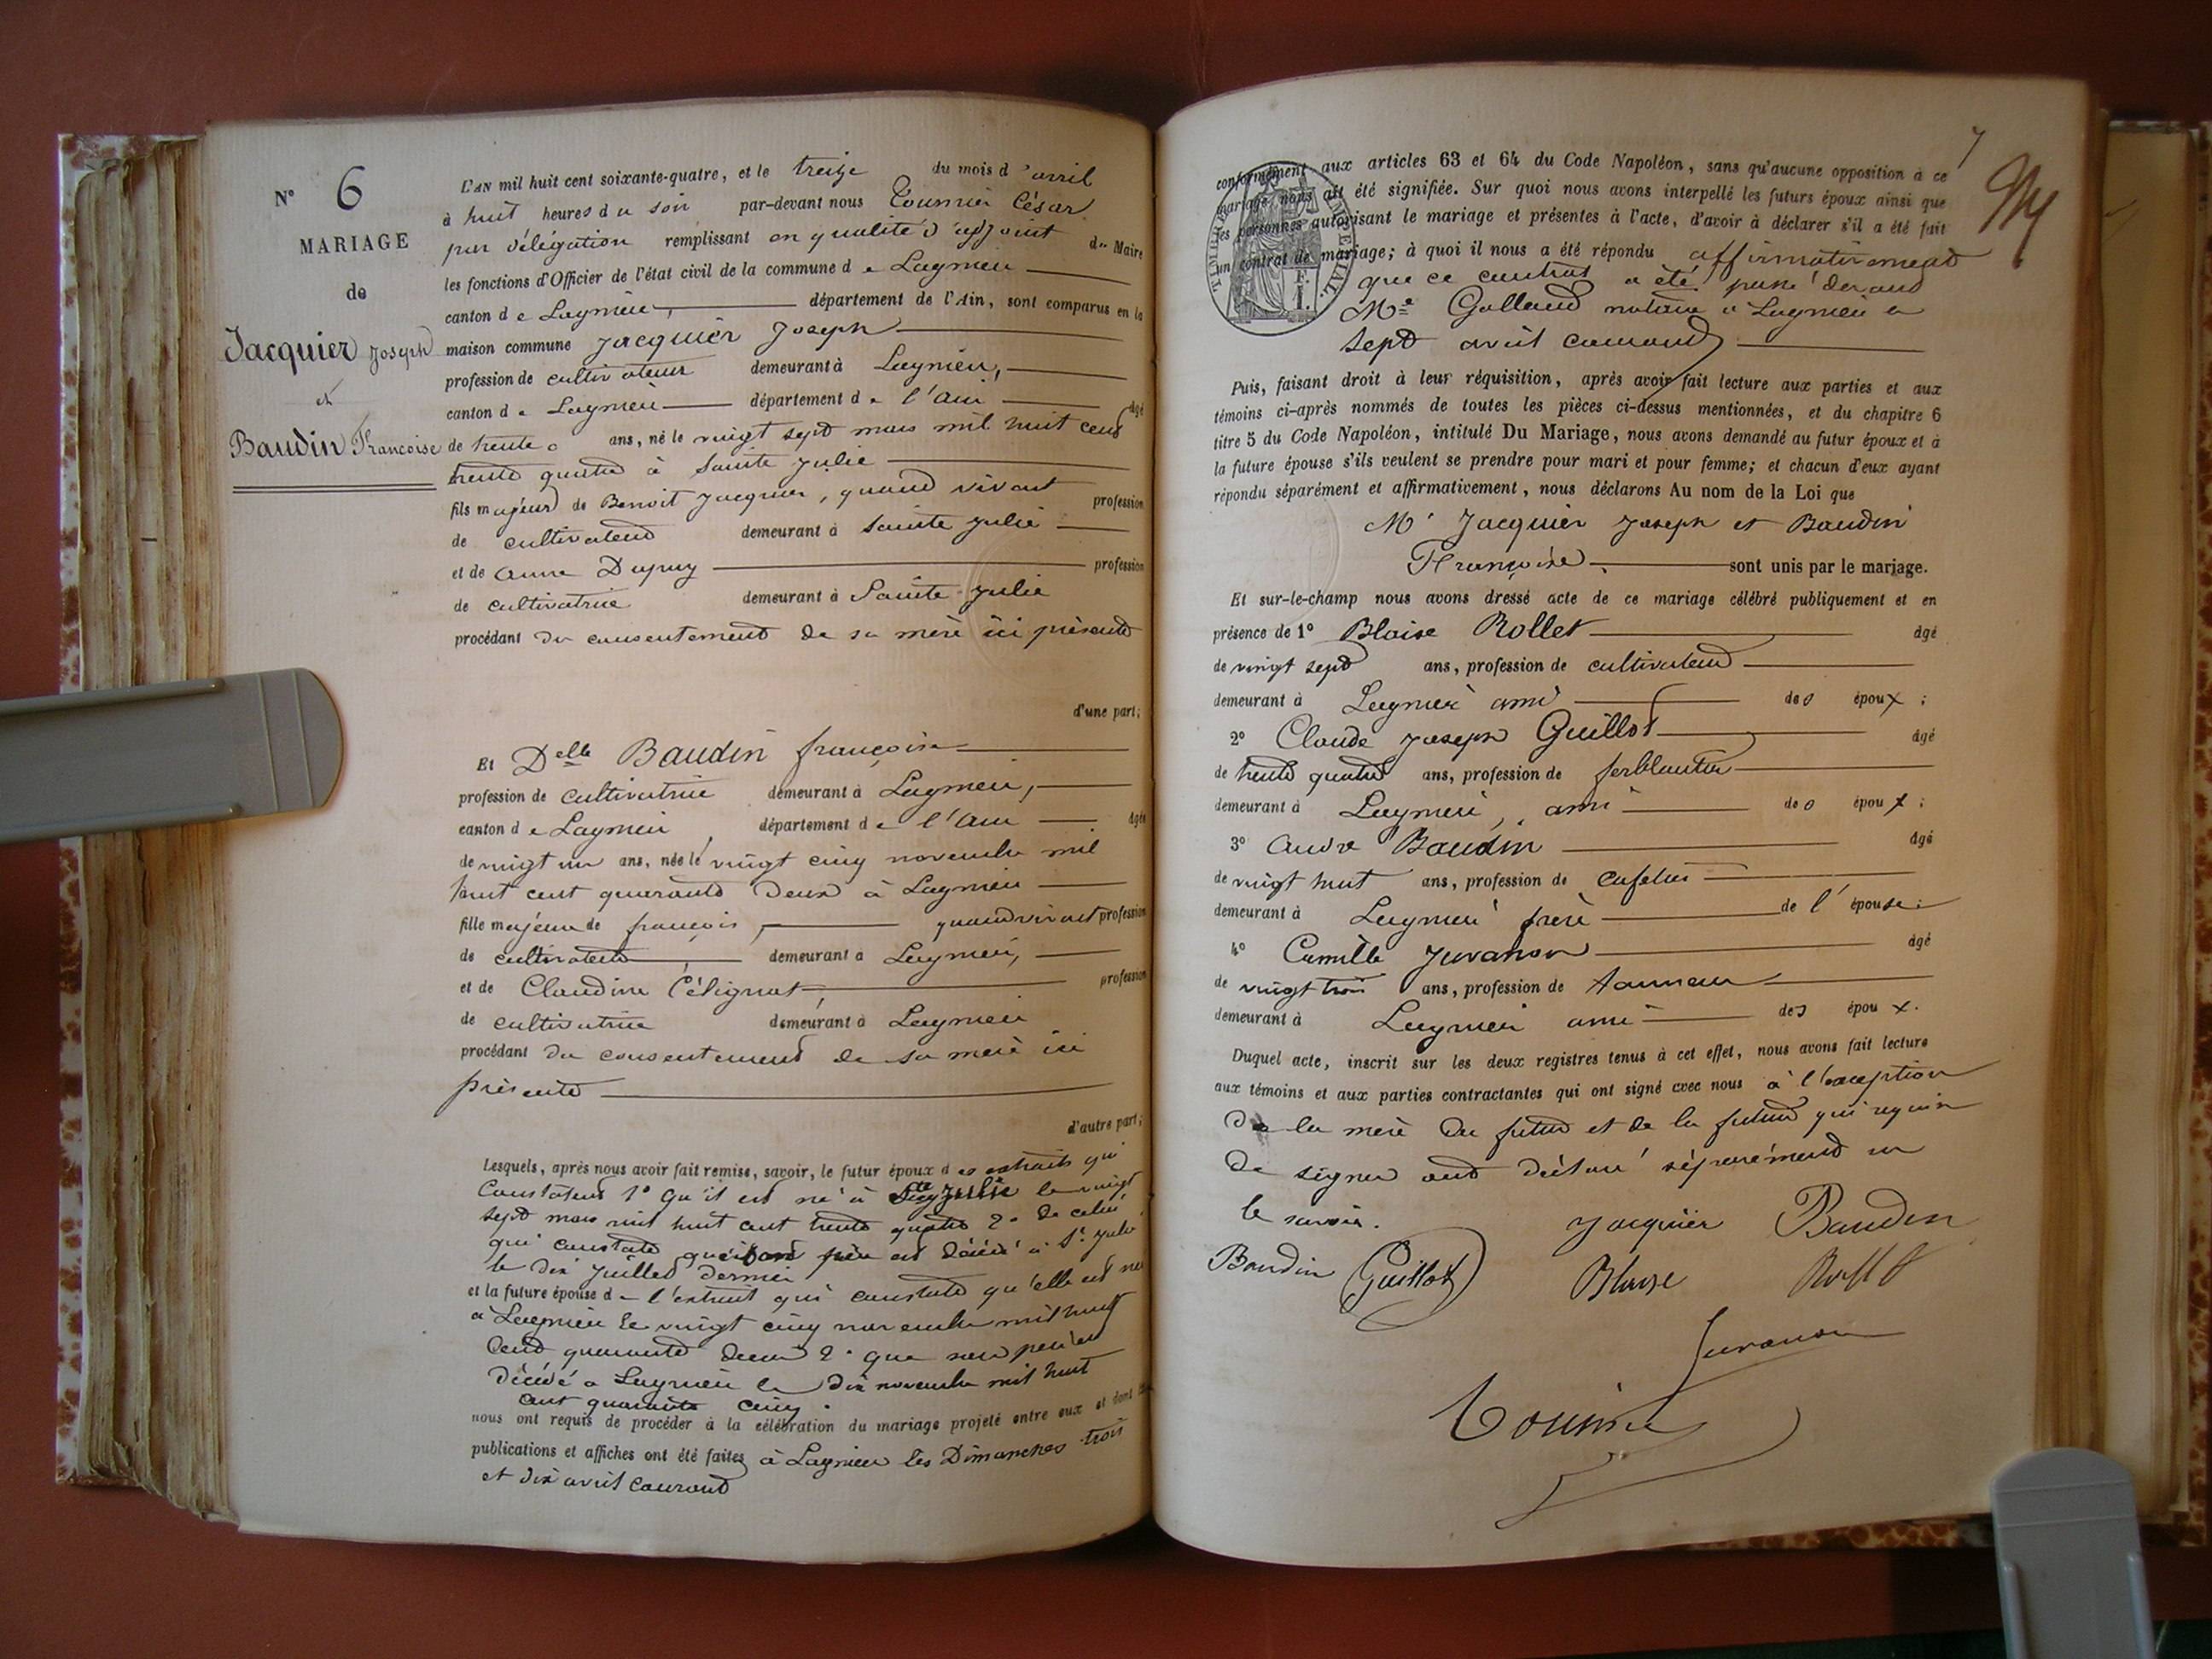 N° 6
MARIAGE
de
Jacquier Joseph
et
Baudin Françoise
L'AN mil huit cent soixante-quatre, et le treize du mois d'avril
à huit heures du soir par-devant nous Tournier César
par délégation remplissant en qualité d'adjoint du Maire
les fonctions d'Officier de l'état civil de la commune de Lagnieu
canton de Lagnieu, département de l'Ain, sont comparus en la
maison commune Jacquier Joseph
profession de cultivateur demeurant à Lagnieu,
canton de Lagnieu département de l'Ain âgé
de trente ans, né le vingt sept mars mil huit cent
trente quatre à Sainte Julie
fils majeur de Benoit Jacquier, quand vivant profession
de cultivateur demeurant à Sainte Julie
et de Anne Dupuy profession
de cultivatrice demeurant à Sainte Julie
procédant du consentement de sa mère ici présente
d'une part;
Et Delle Baudin françoise
profession de cultivatrice demeurant à Lagnieu,
canton de Lagnieu, département de l'Ain âgée
de vingt un ans, née le vingt cinq novembre mil
huit cent quarante deux à Lagnieu
fille majeure de françois, quand vivant profession
de cultivateur demeurant à Lagnieu,
et de Claudine Pélignat, profession
de cultivatrice demeurant à Lagnieu
procédant du consentement de sa mère ici
présente
d'autre part;
Lesquels, après nous avoir fait remise, savoir, le futur époux des extraits qui
constatent 1° qu'il est né à Ste Julie le vingt
sept mars mil huit cent trente quatre 2° de celui
qui constate que son père est décédé à Ste Julie
le dix juillet dernier
et la future épouse de l'extrait qui constate qu'elle est née
à Lagnieu le vingt cinq novembre mil huit
cent quarante deux 2° que son père est
décédé à Lagnieu le dix novembre mil huit
cent quarante cinq.
nous ont requis de procéder à la célébration du mariage projeté entre eux et dont les
publications et affiches ont été faites à Lagnieu les Dimanches trois
et dix avril courant
7
conformément aux articles 63 et 64 du Code Napoléon, sans qu'aucune opposition à ce
mariage nous ait été signifiée. Sur quoi nous avons interpellé les futurs époux ainsi que
les personnes autorisant le mariage et présentes à l'acte, d'avoir à déclarer s'il a été fait
un contrat de mariage; à quoi il nous a été répondu affirmativement
que ce contrat a été passé devant
Me Galland notaire à Lagnieu le
sept avril courant
Puis, faisant droit à leur réquisition, après avoir fait lecture aux parties et aux
témoins ci-après nommés de toutes les pièces ci-dessus mentionnées, et du chapitre 6
titre 5 du Code Napoléon, intitulé Du Mariage, nous avons demandé au futur époux et à
la future épouse s'ils veulent se prendre pour mari et pour femme; et chacun d'eux ayant
répondu séparément et affirmativement, nous déclarons Au nom de la Loi que
Mr Jacquier Joseph et Baudin
Françoise sont unis par le mariage.
Et sur-le-champ nous avons dressé acte de ce mariage célébré publiquement et en
présence de 1° Blaise Rollet âgé
de vingt sept ans, profession de cultivateur
demeurant à Lagnieu ami des époux;
2° Claude Joseph Guillot âgé
de trente quatre ans, profession de ferblantier
demeurant à Lagnieu, ami des époux;
3° André Baudin âgé
de vingt huit ans, profession de cafetier
demeurant à Lagnieu frère de l'épouse;
4° Camille Juvanon âgé
de vingt trois ans, profession de tanneur
demeurant à Lagnieu ami des époux.
Duquel acte, inscrit sur les deux registres tenus à cet effet, nous avons fait lecture
aux témoins et aux parties contractantes qui ont signé avec nous à l'exception
de la mère du futur et de la future qui requis
de signer ont déclaré séparément ne
le savoir.
Jacquier Baudin
Baudin Guillot Blaise Rollet
Juvanon
Tournier